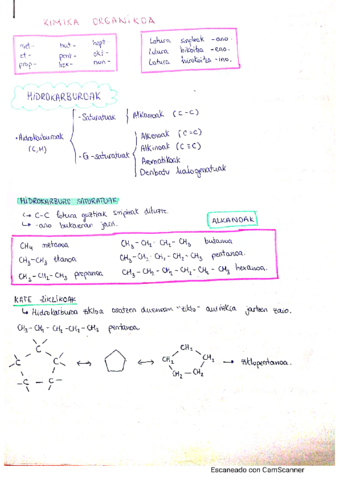 KIMIKA ORGANIKOA
met- but- hept-
et- pent- okt-
prop- hex- non-
Lotura sinpleak -ano
Lotura bikoitza -eno.
Lotura hirukoitza -ino.
HIDROKARBUROAK
• Hidrokarburoak (C,H)
- Saturatuak
Alkanoak (C-C)
- G-saturatuak
Alkenoak (C=C)
Alkinoak (C≡C)
Aromatikoak
Deribatu halogenatuak
HIDROKARBURO SATURATUAK
↳ C-C lotura guztiak sinpleak dituzte.
↳ -ano bukaeran jarri.
ALKANOAK
CH4 metanoa
CH3-CH3 etanoa
CH3-CH2-CH3 propanoa
CH3-CH2-CH2-CH3 butanoa
CH3-CH2-CH2-CH2-CH3 pentanoa.
CH3-CH2-CH2-CH2-CH2-CH3 hexanoa.
KATE ZIKLIKOAK
↳ Hidrokarburo zikloa osatzen duenean "ziklo" aurrizkia jartzen zaio.
CH3-CH2-CH2-CH2-CH3 pentanoa.
C C C C C ↔ ↔ CH2 CH2 CH2 CH2 CH2 → ziklopentanoa.
Escaneado con CamScanner